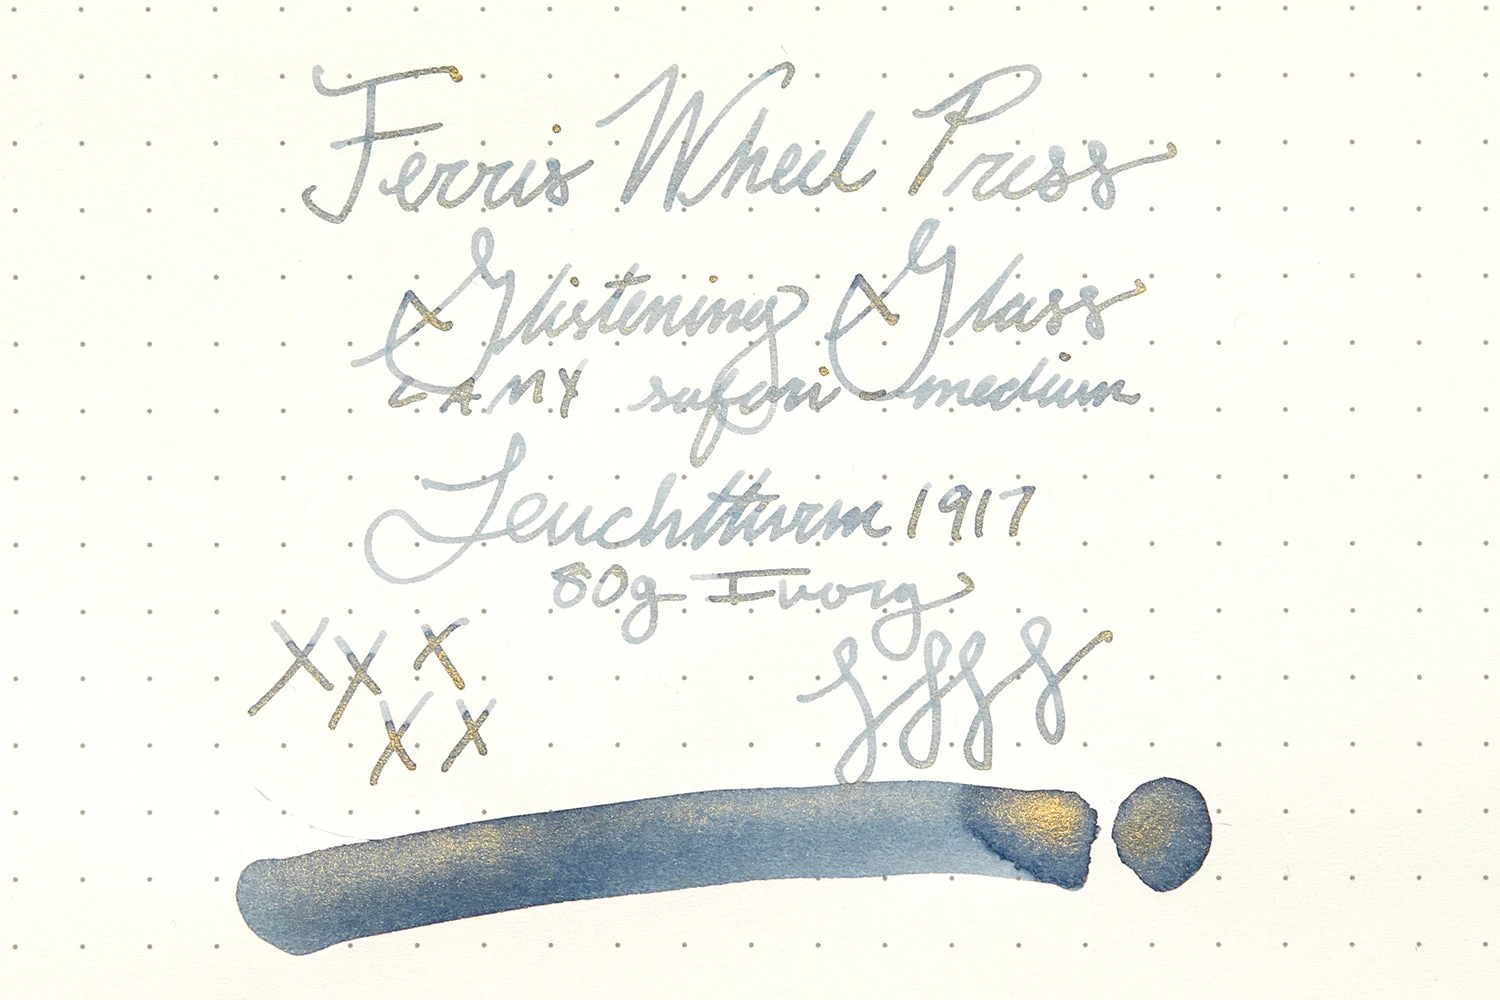 Ferris Wheel Press
Glistening Glass
LAMY safari - medium
Leuchtturm 1917
80g Ivory
X X X
X X